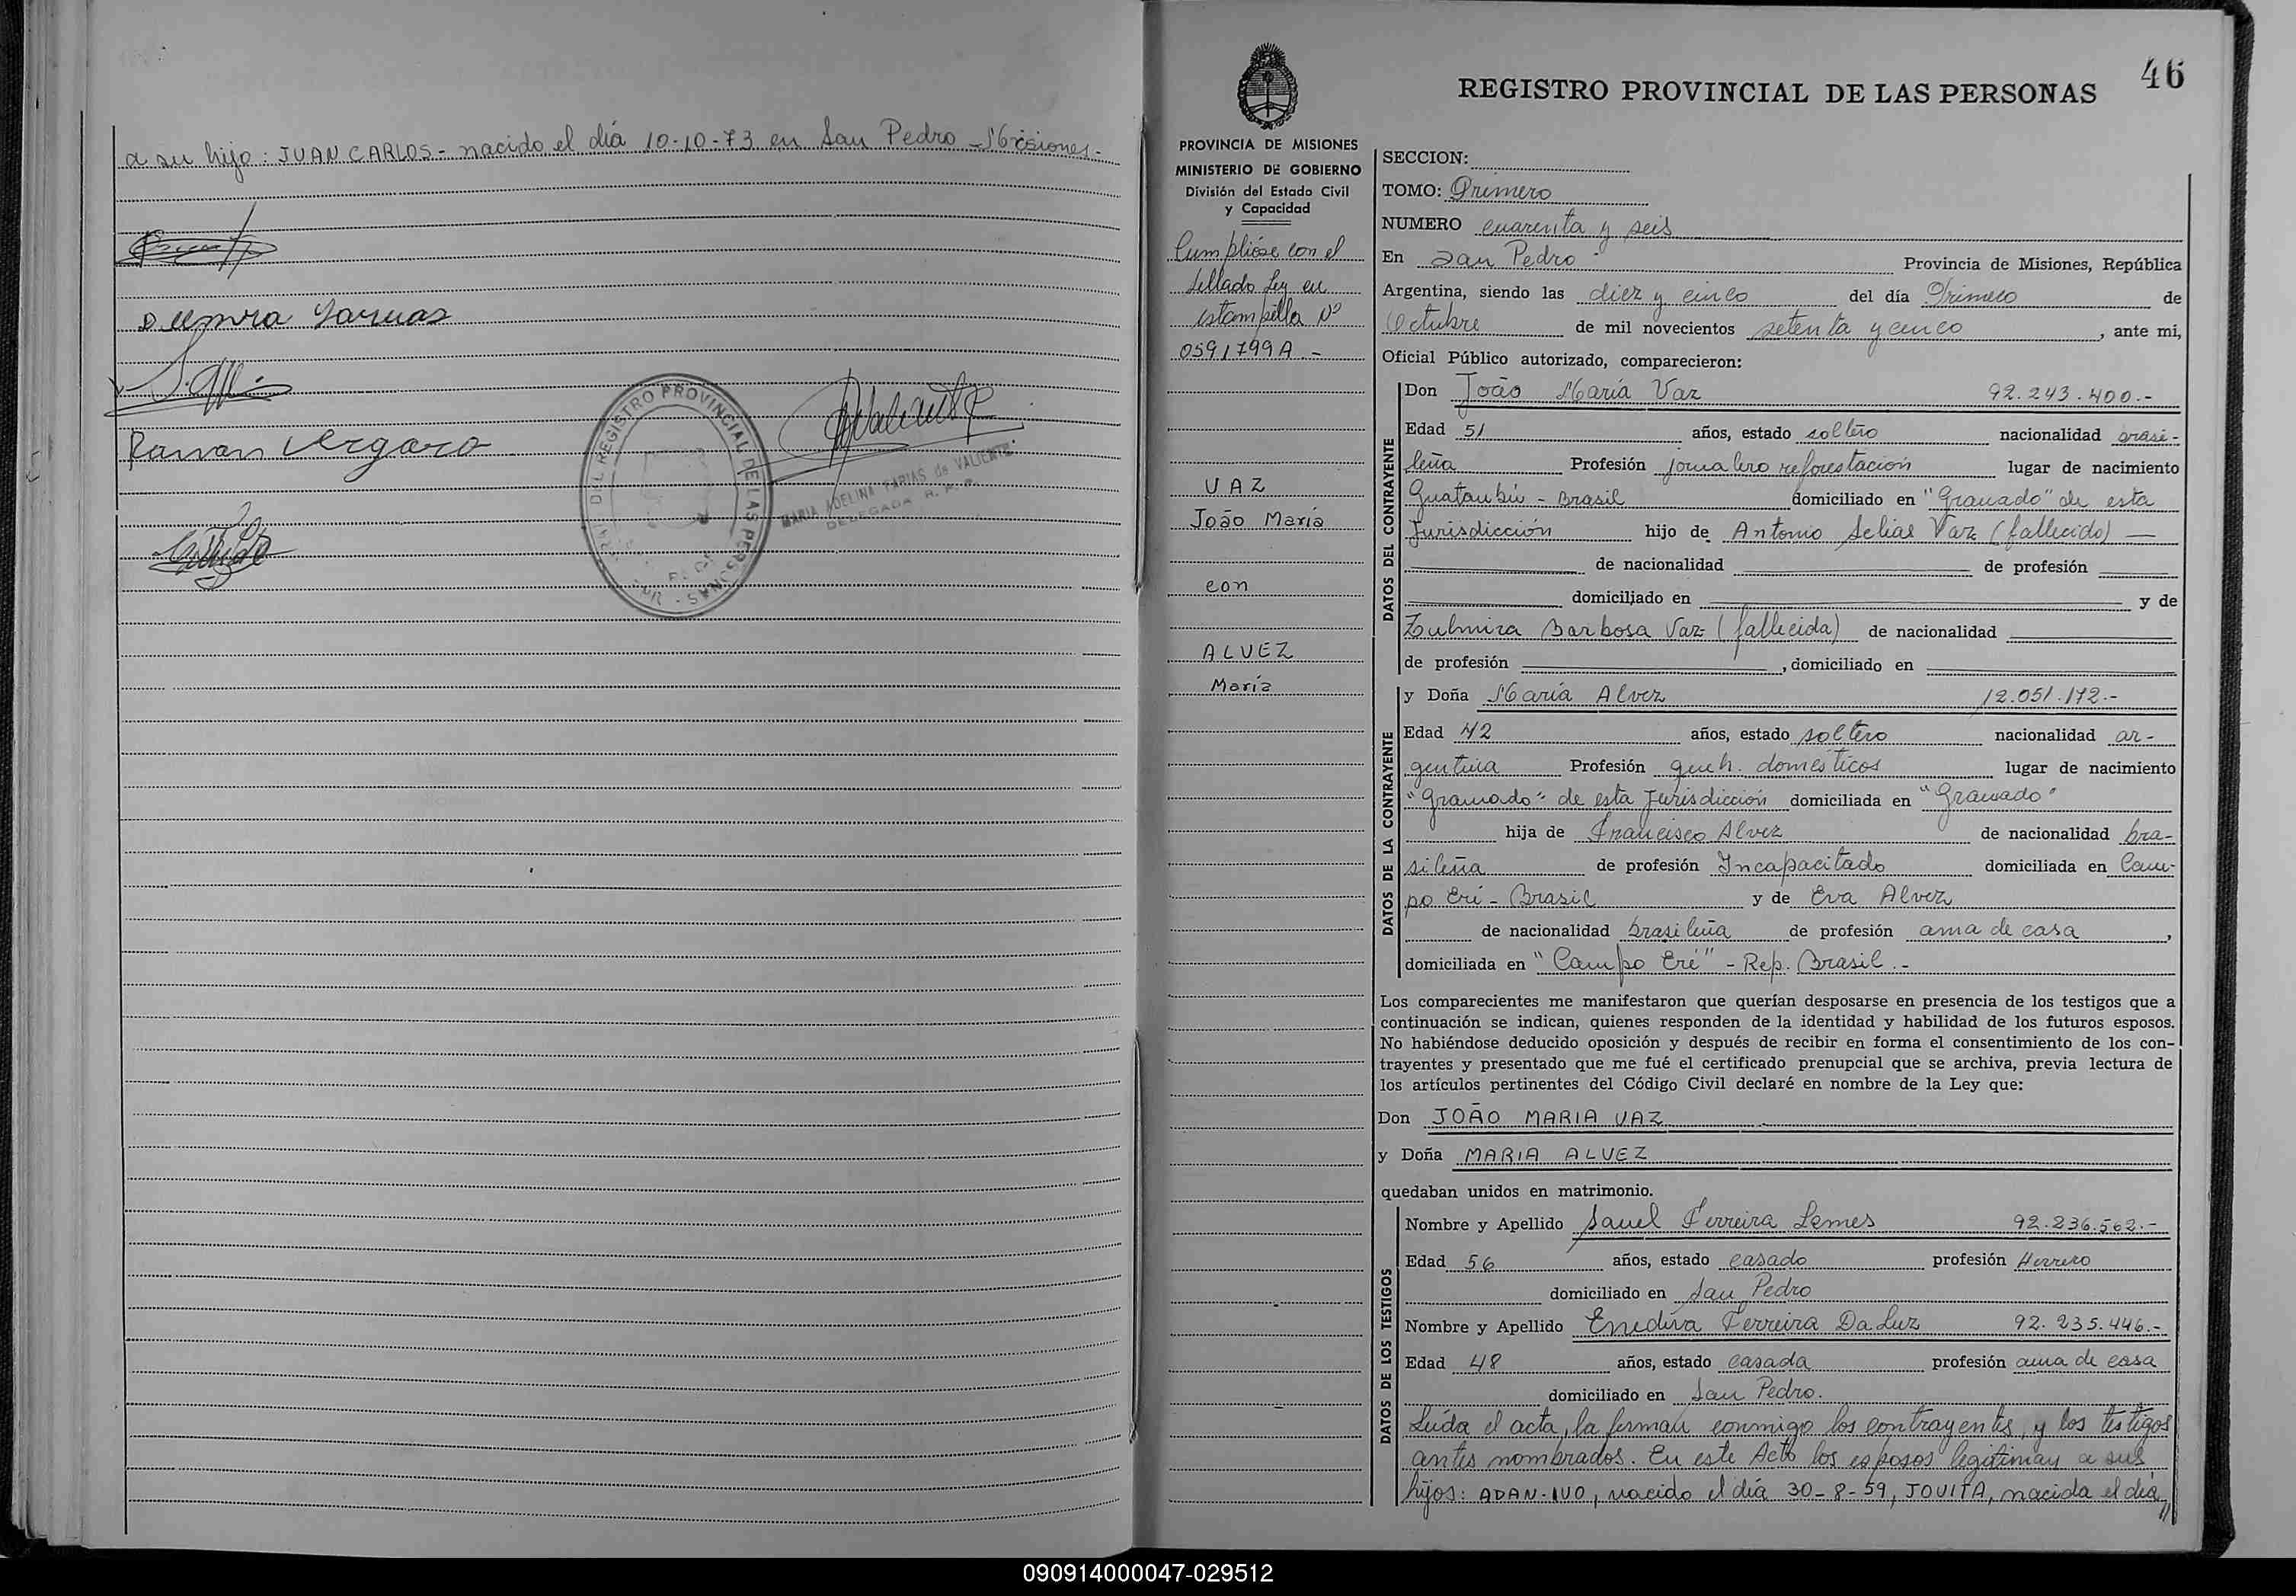 a su hijo: JUAN CARLOS - nacido el día 10-10-73 en San Pedro - Misiones.-
Ramon Vergara
DEL REGISTRO PROVINCIAL DE LAS PERSONAS
MARIA ADELINA FARIAS de VALIENTE
DELEGADA R. P. P.
46
REGISTRO PROVINCIAL DE LAS PERSONAS
PROVINCIA DE MISIONES
MINISTERIO DE GOBIERNO
División del Estado Civil
y Capacidad
Cumplióse con el
Sellado Ley en
estampilla Nº
0591799A.-
VAZ
João María
con
ALVEZ
María
SECCION:
TOMO: Primero
NUMERO cuarenta y seis
En San Pedro Provincia de Misiones, República
Argentina, siendo las diez y cinco del día Primero de
Octubre de mil novecientos setenta y cinco, ante mí,
Oficial Público autorizado, comparecieron:
DATOS DEL CONTRAYENTE
Don João María Vaz 92.243.400.-
Edad 51 años, estado soltero nacionalidad brasi-
leña Profesión jornalero reforestación lugar de nacimiento
Guatambú - Brasil domiciliado en "Gramado" de esta
Jurisdicción hijo de Antonio Selias Vaz (fallecido) —
de nacionalidad de profesión
domiciliado en y de
Zulmira Barbosa Vaz (fallecida) de nacionalidad
de profesión , domiciliado en
DATOS DE LA CONTRAYENTE
y Doña María Alvez 12.051.172.-
Edad 42 años, estado soltero nacionalidad ar-
gentina Profesión queh. domésticos lugar de nacimiento
"Gramado" de esta Jurisdicción domiciliada en "Gramado"
hija de Francisco Alvez de nacionalidad bra-
sileña de profesión Incapacitado domiciliada en Cam-
po Eré - Brasil y de Eva Alvez
de nacionalidad brasileña de profesión ama de casa,
domiciliada en "Campo Eré" - Rep. Brasil.-
Los comparecientes me manifestaron que querían desposarse en presencia de los testigos que a
continuación se indican, quienes responden de la identidad y habilidad de los futuros esposos.
No habiéndose deducido oposición y después de recibir en forma el consentimiento de los con-
trayentes y presentado que me fué el certificado prenupcial que se archiva, previa lectura de
los artículos pertinentes del Código Civil declaré en nombre de la Ley que:
Don JOÃO MARIA VAZ
y Doña MARIA ALVEZ
quedaban unidos en matrimonio.
DATOS DE LOS TESTIGOS
Nombre y Apellido Sauel Ferreira Lemes 92.236.562.-
Edad 56 años, estado casado profesión Herrero
domiciliado en San Pedro
Nombre y Apellido Enedina Ferreira Da Luz 92.235.446.-
Edad 48 años, estado casada profesión ama de casa
domiciliado en San Pedro.
Leída el acta, la firman conmigo los contrayentes, y los testigos
antes nombrados. En este Acto los esposos legitiman a sus
hijos: ADAN-IVO, nacido el día 30-8-59, JOVITA, nacida el día //
090914000047-029512